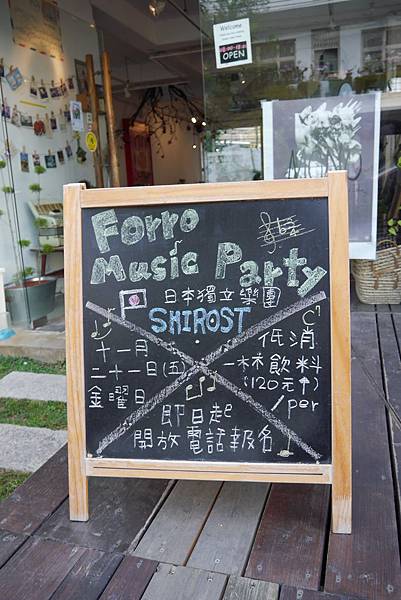 Welcome
OPEN
Forro
Music Party
日本獨立樂團
SHIROST
十一月
二十一日(五)
金曜日
低消
一杯飲料
(120元↑)
/per
即日起
開放電話報名